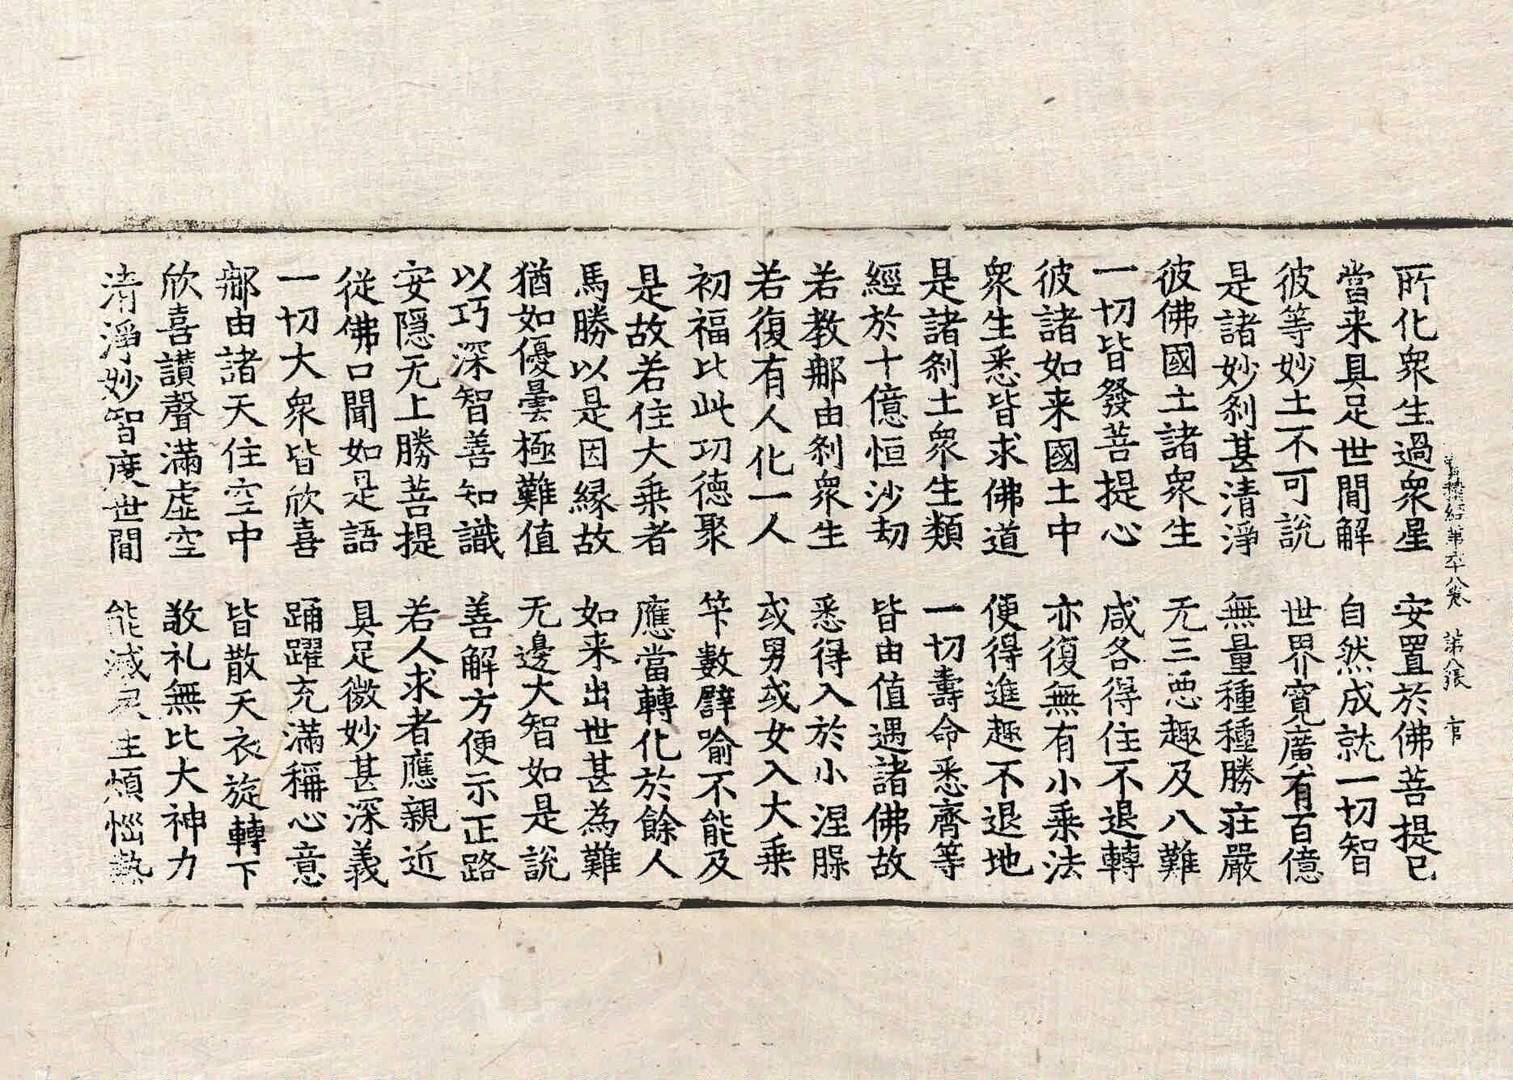 積經第六十八卷 第八張 官
所化衆生過衆星 安置於佛菩提已
當来具足世間解 自然成就一切智
彼等妙土不可說 世界寬廣有百億
是諸妙刹甚清淨 無量種種勝莊嚴
彼佛國土諸衆生 无三惡趣及八難
一切皆發菩提心 咸各得住不退轉
彼諸如来國土中 亦復無有小乗法
衆生悉皆求佛道 便得進趣不退地
是諸刹土衆生類 一切壽命悉齊等
經於十億恒沙劫 皆由值遇諸佛故
若教那由刹衆生 悉得入於小涅槃
若復有人化一人 或男或女入大乗
初福比此功德聚 筭數譬喻不能及
是故若住大乗者 應當轉化於餘人
馬勝以是因縁故 如来出世甚為難
猶如優曇極難值 无邊大智如是說
以巧深智善知識 善解方便示正路
安隱无上勝菩提 若人求者應親近
從佛口聞如是語 具足微妙甚深義
一切大衆皆欣喜 踊躍充滿稱心意
那由諸天住空中 皆散天衣旋轉下
欣喜讃聲滿虛空 敬礼無比大神力
清淨妙智度世間 能滅衆生煩惱熱